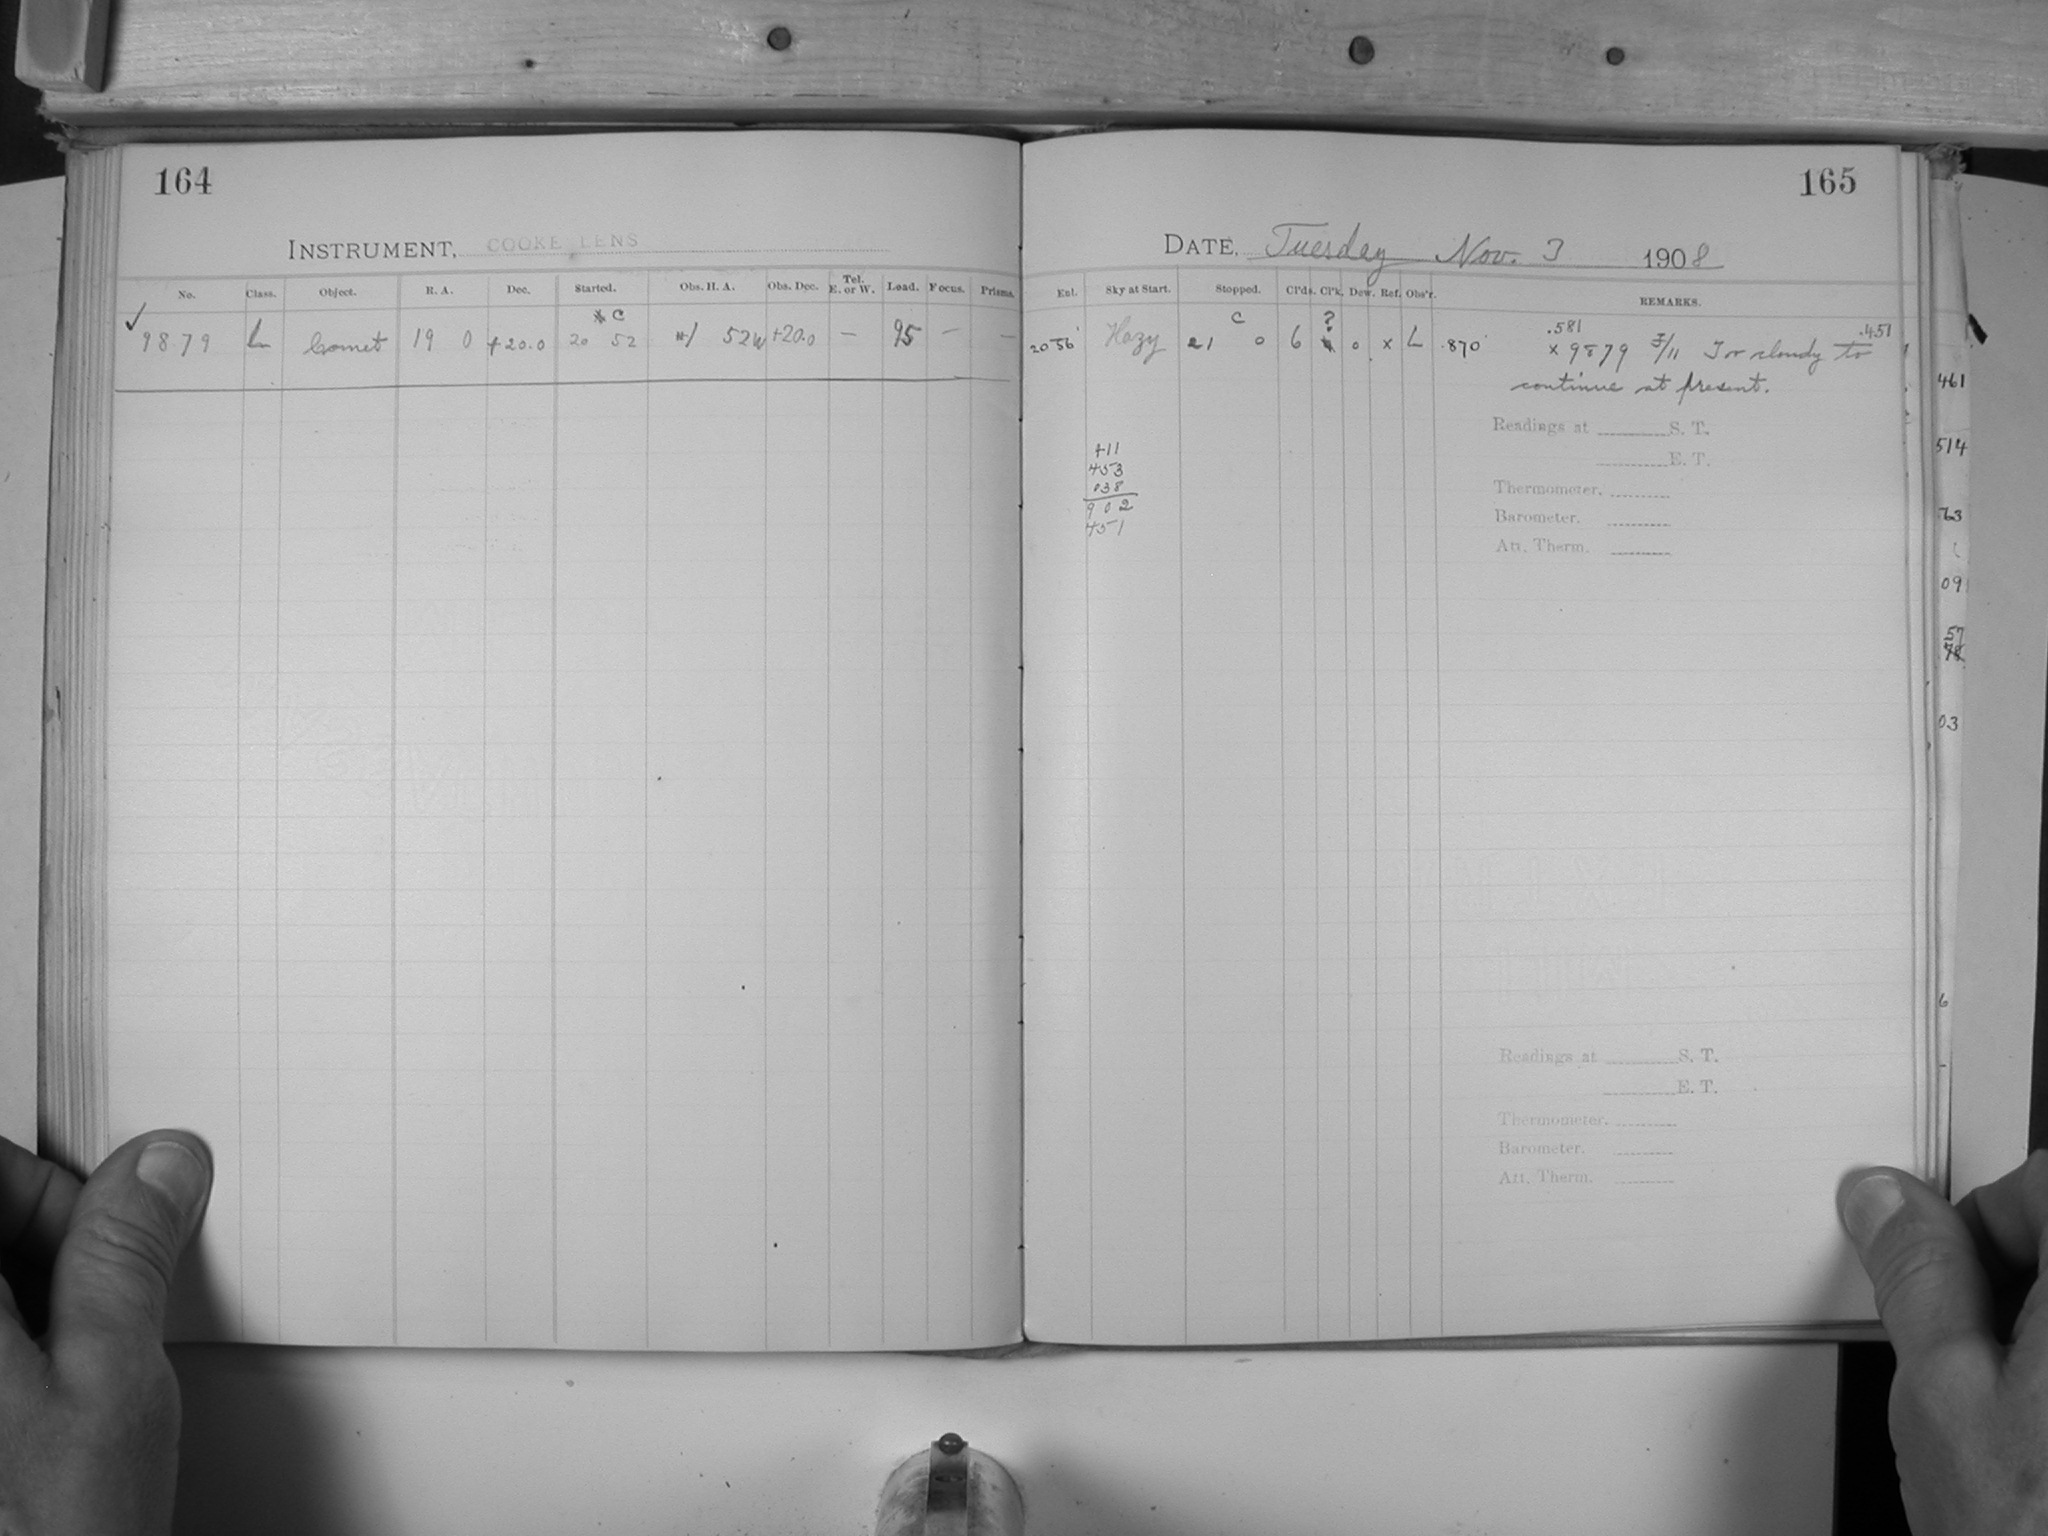 164
INSTRUMENT, COOKE LENS
No. Class. Object. R. A. Dec. Started. Obs. H. A. Obs. Dec. Tel. E. or W. Load. Focus. Prisms.
C
✓ 9879 L Comet 19 0 +20.0 20 52 1 52W +20.0 — 95 — —
165
DATE, Tuesday Nov. 3 1908
Ent. Sky at Start. Stopped. Cl'ds. Cl'k. Dew. Ref. Obs'r. REMARKS.
C ? .581 .451
2056 Hazy 21 0 6 0 x L .870 x 9879 3/11 Too cloudy to
continue at present.
Readings at S. T.
E. T.
Thermometer.
Barometer.
Att. Therm.
411
453
038
902
451
Readings at S. T.
E. T.
Thermometer.
Barometer.
Att. Therm.
461
514
63
09
57
78
03
6